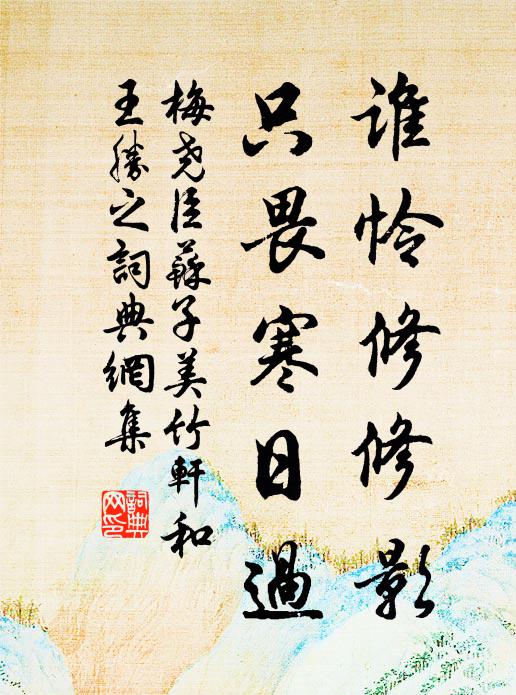 谁怜修修影
只畏寒日過
梅尧臣蘇子美竹軒和
王勝之詞典網集
詞典网印